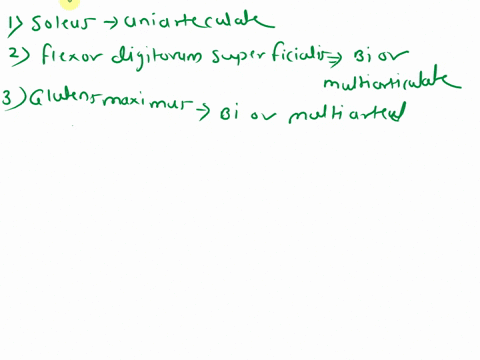 1) Soleus → uniarteculate
2) flexor digitorum superficialis → Bi or
multiarticulate
3) Gluteus maximus → Bi or multiarteul